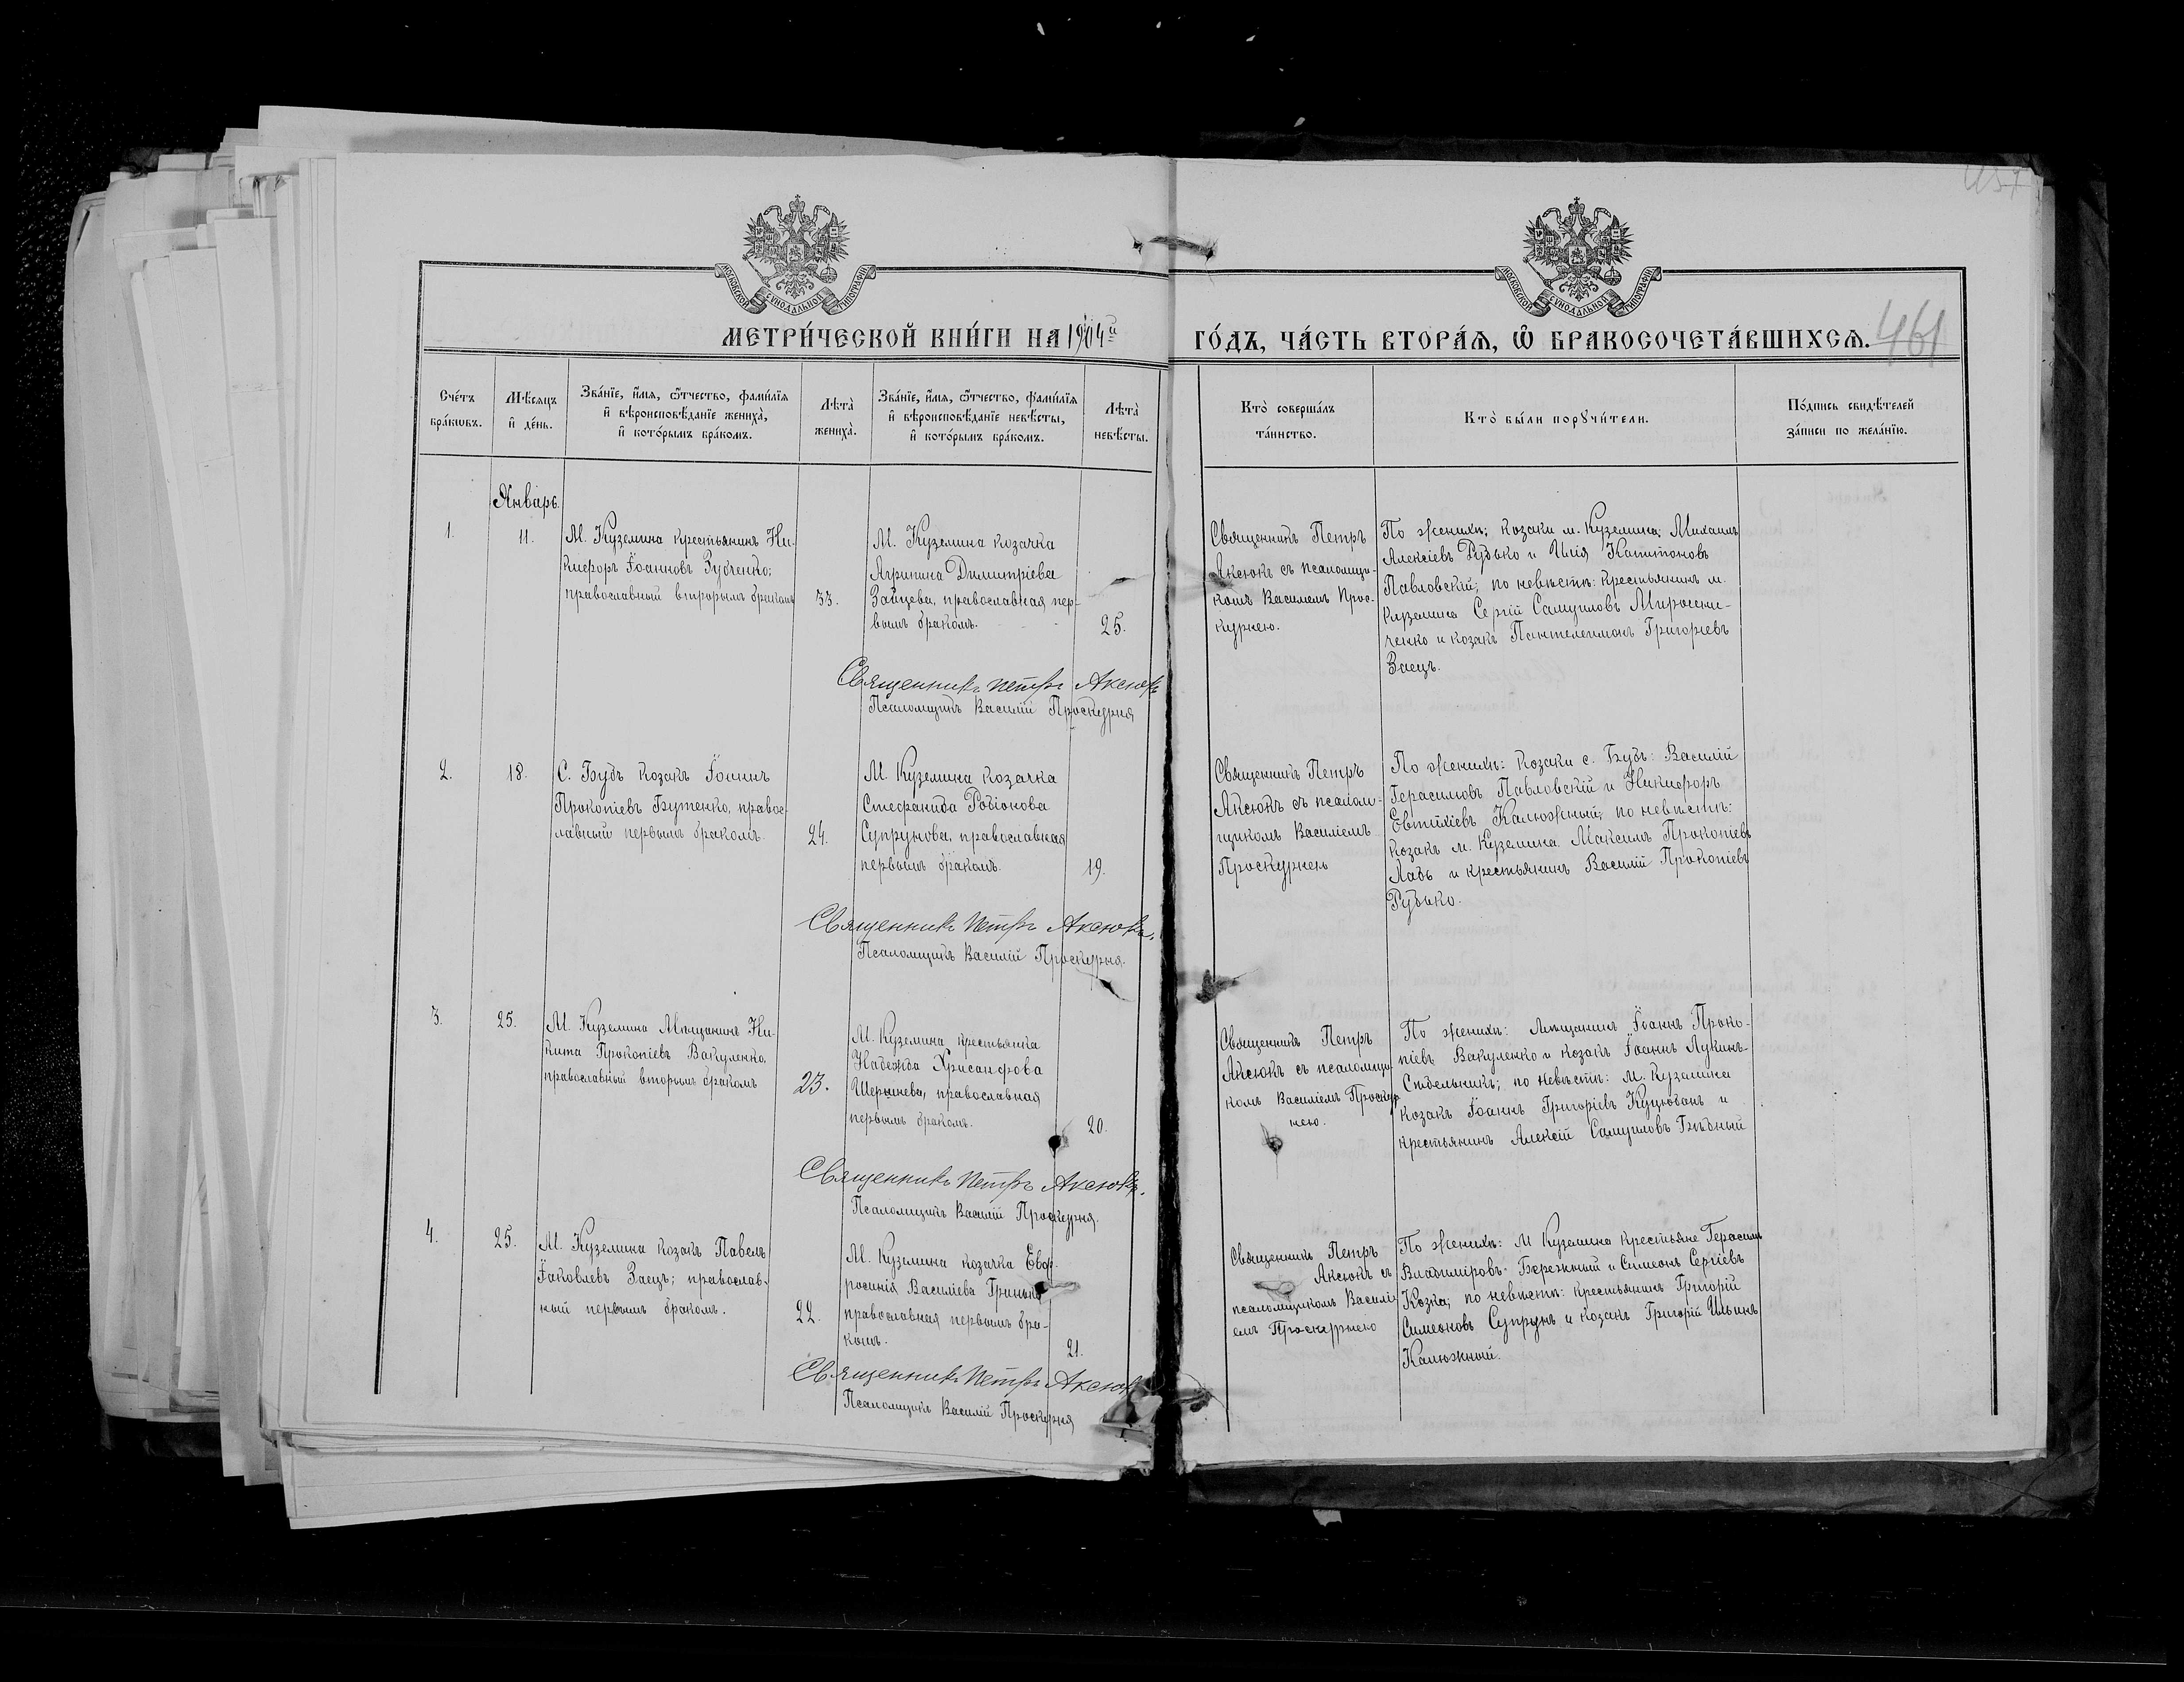 457
МОСКОВСКОЙ СѴНОДАЛЬНОЙ ТИПОГРАФІИ
МОСКОВСКОЙ СѴНОДАЛЬНОЙ ТИПОГРАФІИ
МЕТРИ́ЧЕСКОЙ КНИ́ГИ НА 1904й ГО́ДЪ, ЧА́СТЬ ВТОРА́Ѧ, Ѽ БРАКОСОЧЕТА́ВШИХСѦ.
461
Сче́тъ
бра́кѡвъ.
Мѣ́сѧцъ
и҆ де́нь.
Зва́нїе, и҆́мѧ, ѻ҆́тчество, фами́лїѧ
и҆ вѣроисповѣ́данїе жениха̀,
и҆ кото́рымъ бра́комъ.
Лѣта̀
жениха̀.
Зва́нїе, и҆́мѧ, ѻ҆́тчество, фами́лїѧ
и҆ вѣроисповѣ́данїе невѣ́сты,
и҆ кото́рымъ бра́комъ.
Лѣта̀
невѣ́сты.
Кто̀ соверша́лъ
та́инство.
Кто̀ бы́ли порꙋчи́тели.
По́дпись свидѣ́телей
за́писи по жела́нїю.
Январь.
1.
11.
М. Куземина крестьянинъ Ни-
кифоръ Іоанновъ Зубченко;
православный вторымъ бракомъ
33.
М. Куземина козачка
Агрипина Димитріева
Зайцева, православная пер-
вымъ бракомъ.
25.
Священникъ Петръ
Аксюкъ съ псаломщи-
комъ Василіемъ Прос-
курнею.
По женихѣ; козаки м. Куземина: Михаилъ
Алексіевъ Рудько и Илія Капитоновъ
Павловскій; по невѣстѣ: крестьянинъ м.
Куземина Сергій Самуиловъ Мирошни-
ченко и козакъ Пантелеимонъ Григоріевъ
Заецъ.
Священникъ Петръ Аксюкъ
Псаломщикъ Василій Проскурня
2.
18.
С. Будъ козакъ Іоаннъ
Прокопіевъ Бутенко, правос-
лавный первымъ бракомъ.
24.
М. Куземина козачка
Стефанида Родіонова
Супрунова, православная
первымъ бракомъ.
19.
Священникъ Петръ
Аксюкъ съ псалом-
щикомъ Василіемъ
Проскурнею
По женихѣ: козаки с. Будъ: Василій
Герасимовъ Павловскій и Никифоръ
Евтихіевъ Калюжный; по невѣстѣ:
козакъ м. Куземина Максимъ Прокопіевъ
Ладь и крестьянинъ Василій Прокопіевъ
Рудько.
Священникъ Петръ Аксюкъ.
Псаломщикъ Василій Проскурня.
3.
25.
М. Куземина Мѣщанинъ Ни-
кита Прокопіевъ Вакуленко,
православный вторымъ бракомъ
23.
М. Куземина крестьянка
Надежда Хрисанфова
православная
первымъ бракомъ.
20.
Священникъ Петръ
Аксюкъ съ псаломщи-
комъ Василіемъ Проскур-
нею.
По женихѣ: мѣщанинъ Іоаннъ Проко-
піевъ Вакуленко и козакъ Іоаннъ Лукинъ
Сидельникъ; по невѣстѣ: м. Куземина
козакъ Іоаннъ Григоріевъ Куцованъ и
крестьянинъ Алексій Самуиловъ Бѣдный
Священникъ Петръ Аксюкъ.
Псаломщикъ Василій Проскурня.
4.
25.
М. Куземина козакъ Павелъ
Іаковлевъ Заецъ; православ-
ный первымъ бракомъ.
22.
М. Куземина козачка Евф-
росинія Василіева Гринько
православная первымъ бра-
комъ.
21.
Священникъ Петръ
Аксюкъ съ
псаломщикомъ Василі-
емъ Проскурнею
По женихѣ: М. Куземина крестьяне Герасимъ
Владиміровъ Бережный и Симеонъ Сергіевъ
Козка; по невѣстѣ: крестьянинъ Григорій
Симеоновъ Супрунъ и козакъ Григорій Ильинъ
Калюжный.
Священникъ Петръ Аксюкъ
Псаломщикъ Василій Проскурня